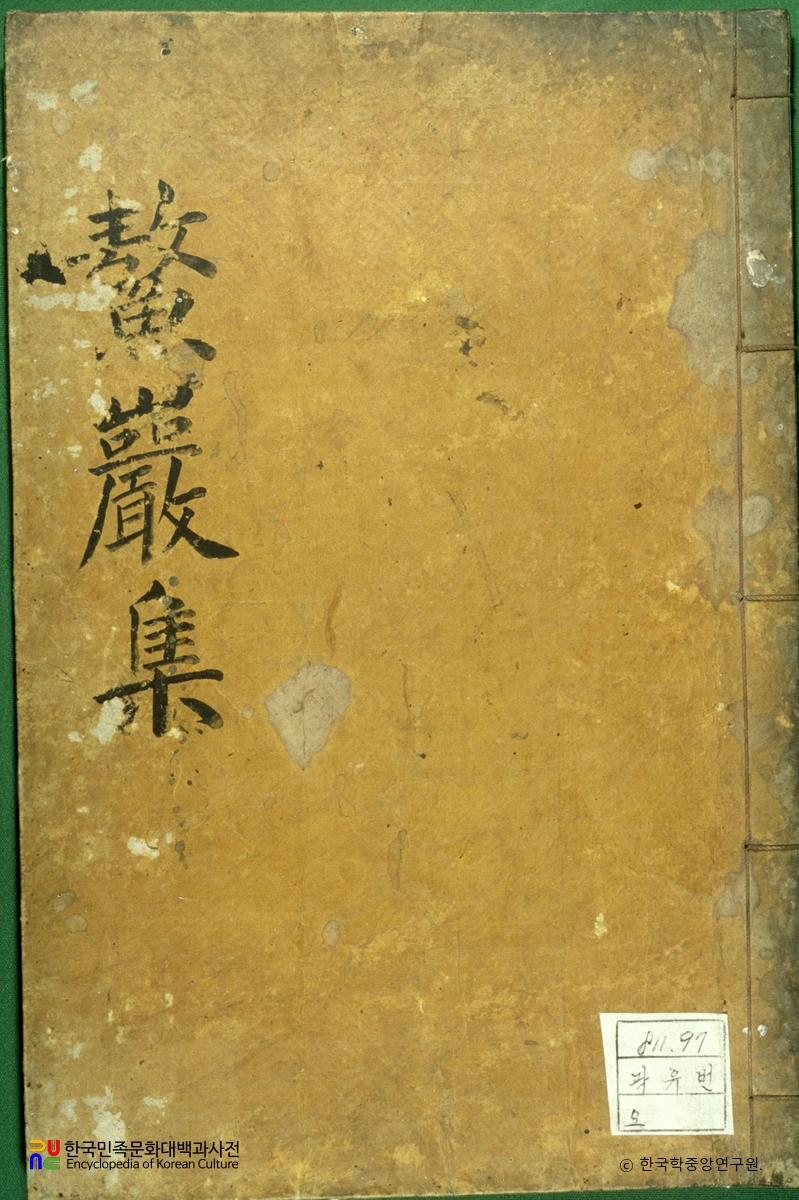 鰲巖集
811.97
곽유번
오
한국민족문화대백과사전
Encyclopedia of Korean Culture
© 한국학중앙연구원.